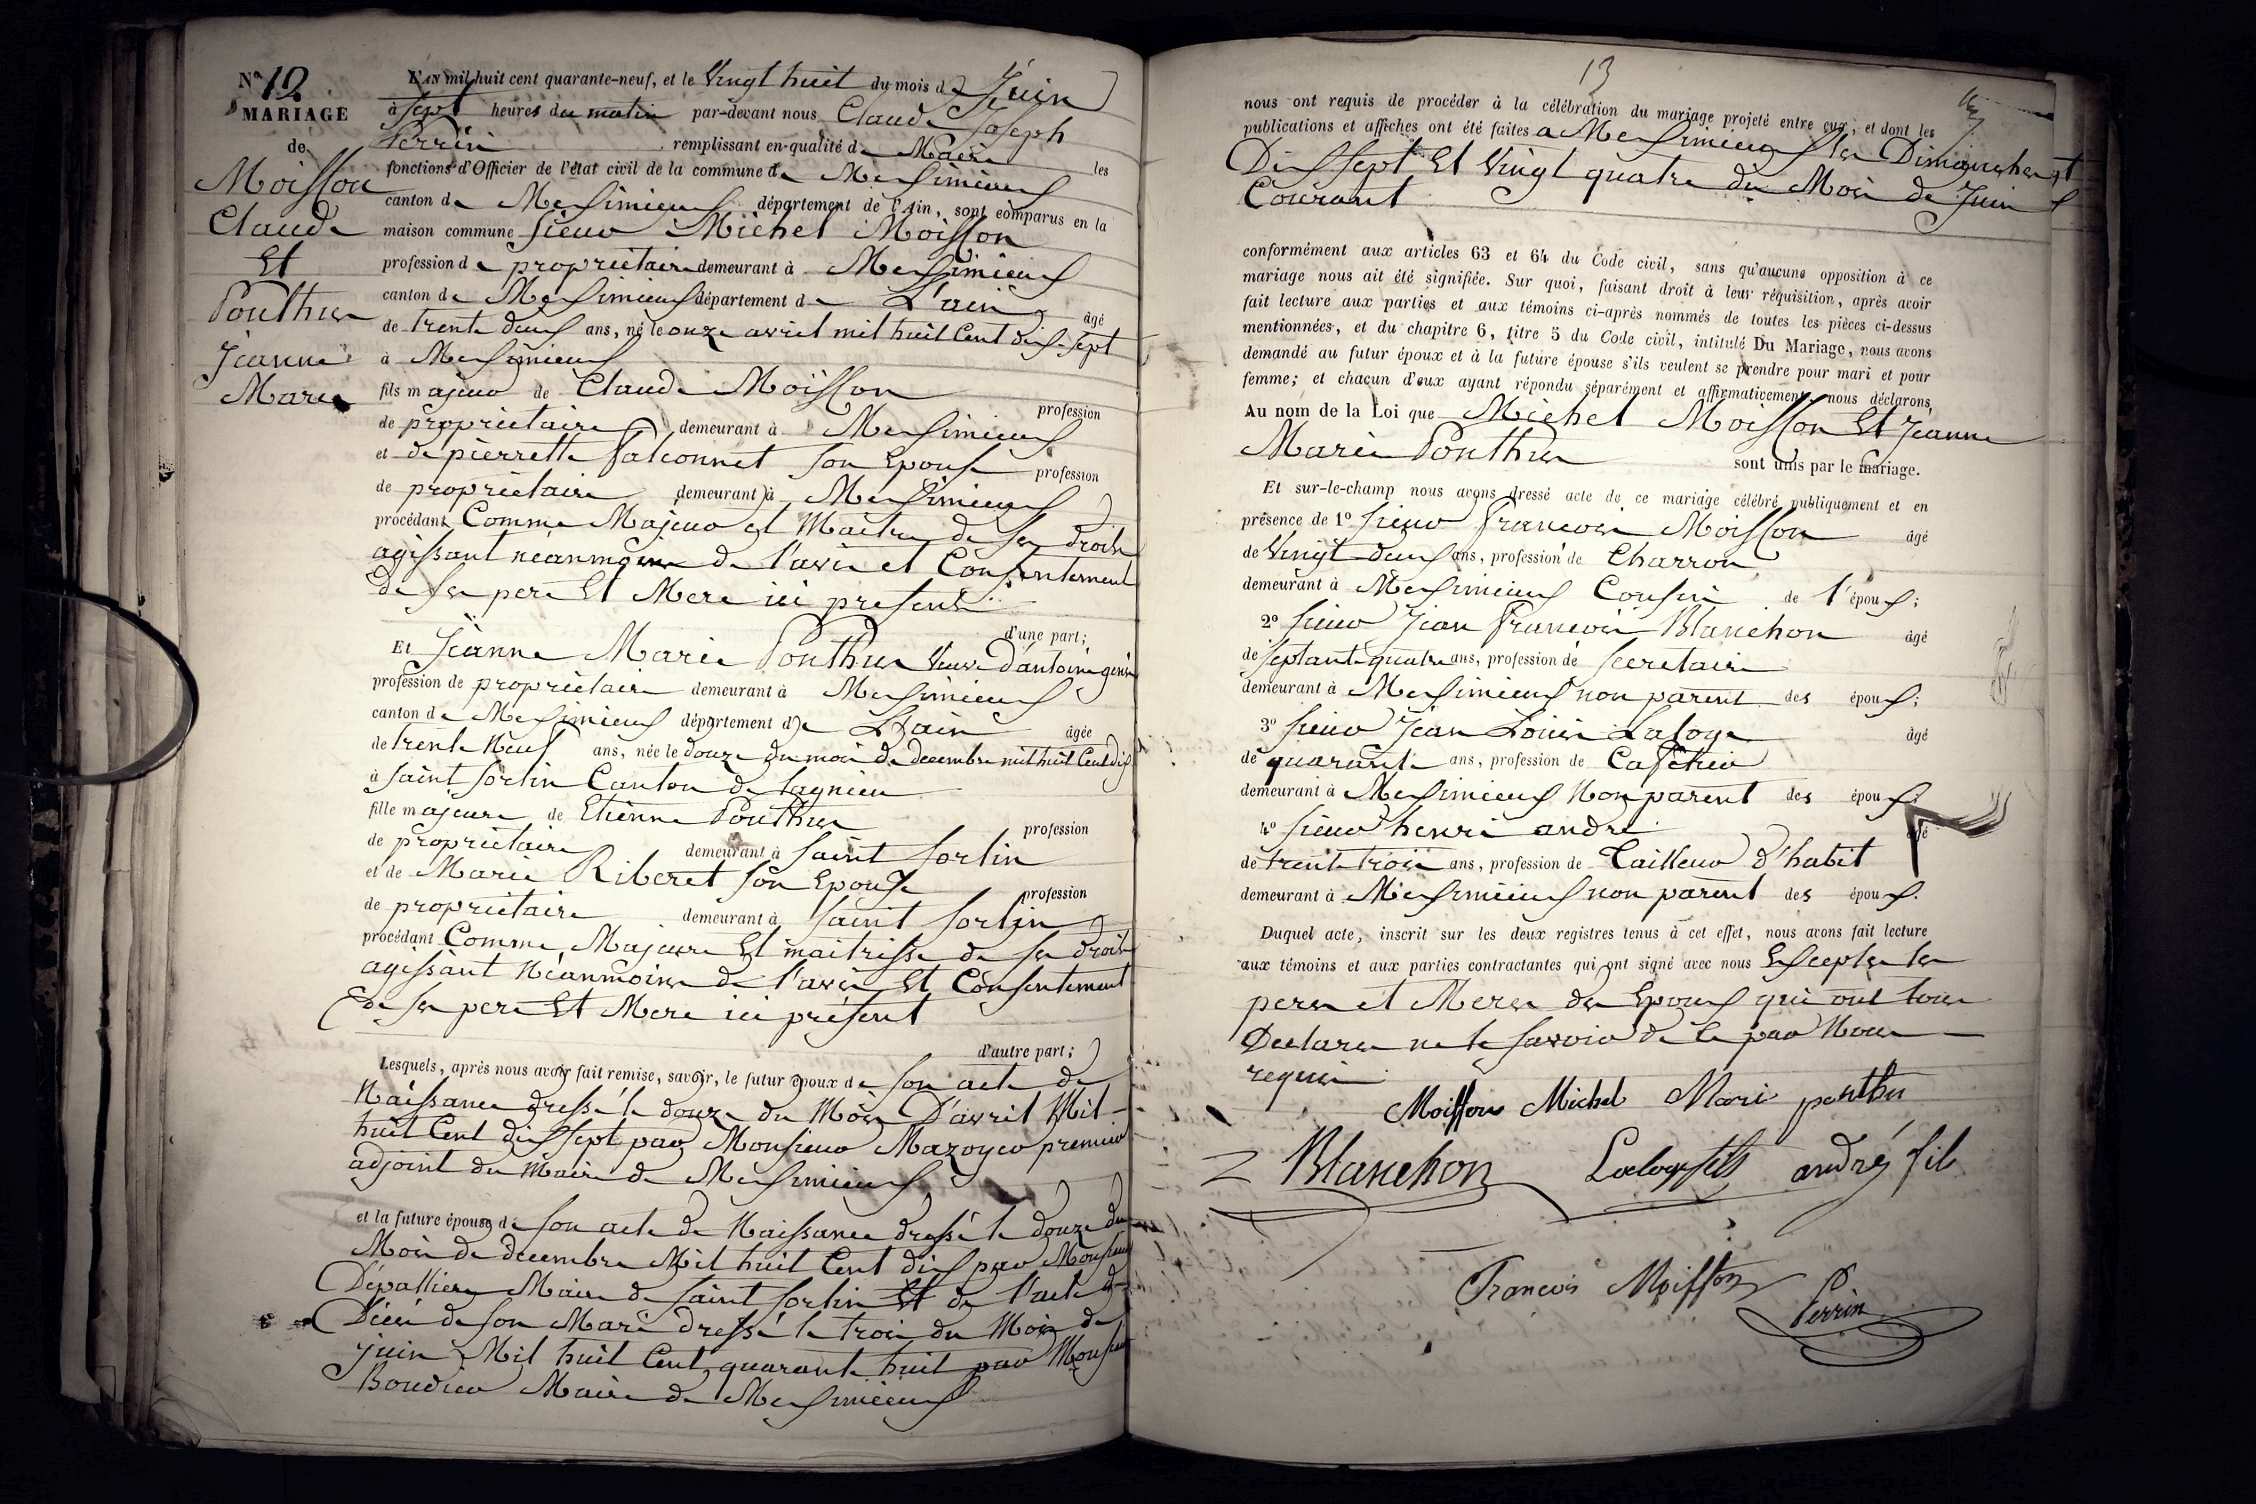 N° 12
MARIAGE
de
Moisson
Claude
Et
Ponthus
Jeanne
Marie
L'AN mil huit cent quarante-neuf, et le Vingt huit du mois de Juin
à sept heures du matin par-devant nous Claude Joseph
Perrin remplissant en qualité de Maire les
fonctions d'Officier de l'état civil de la commune de Meximieux
canton de Meximieux département de l'Ain, sont comparus en la
maison commune sieur Michel Moisson
profession de propriétaire demeurant à Meximieux
canton de Meximieux département de L'ain âgé
de trente deux ans, né le onze avril mil huit Cent dix sept
à Meximieux
fils majeur de Claude Moisson profession
de propriétaire demeurant à Meximieux
et de pierrette falconnet son Epouse profession
de propriétaire demeurant à Meximieux
procédant Comme Majeur et Maitre de ses droits
agissant néanmoins de l'avis et Consentement
de ses pere Et Mere ici presents
d'une part;
Et Jeanne Marie Ponthus Veuve d'antoine genin
profession de propriétaire demeurant à Meximieux
canton de Meximieux département de L'ain âgée
de trente Neuf ans, née le douze du mois de decembre mil huit Cent dix
à saint sorlin Canton de Lagnieu
fille majeure de Etienne Ponthus profession
de propriétaire demeurant à saint sorlin
et de Marie Riberet son Epouse profession
de propriétaire demeurant à saint sorlin
procédant Comme Majeure Et maitrisse de ses droits
agissant Néanmoins de l'avis Et Consentement
de ses pere Et Mere ici présent
d'autre part;
Lesquels, après nous avoir fait remise, savoir, le futur époux de son acte de
Naissance dressé le douze du Mois D'avril Mil
huit Cent dix sept par Monsieur Mazoyer premier
adjoint du Maire de Meximieux
et la future épouse de son acte de Naissance dressé le douze du
Mois de decembre Mil huit Cent dix par Monsieur
Maire de saint sorlin Et de l'acte de
Décès de son Mari dressé le trois du Mois de
juin Mil huit Cent quarante huit par Monsieur
Maire de Meximieux
13
nous ont requis de procéder à la célébration du mariage projeté entre eux, et dont les
publications et affiches ont été faites a Meximieux les Dimanches
Dix sept Et Vingt quatre du Mois de Juin
Courant
conformément aux articles 63 et 64 du Code civil, sans qu'aucune opposition à ce
mariage nous ait été signifiée. Sur quoi, faisant droit à leur réquisition, après avoir
fait lecture aux parties et aux témoins ci-après nommés de toutes les pièces ci-dessus
mentionnées, et du chapitre 6, titre 5 du Code civil, intitulé Du Mariage, nous avons
demandé au futur époux et à la future épouse s'ils veulent se prendre pour mari et pour
femme; et chacun d'eux ayant répondu séparément et affirmativement, nous déclarons,
Au nom de la Loi que Michel Moisson Et Jeanne
Marie Ponthus sont unis par le mariage.
Et sur-le-champ nous avons dressé acte de ce mariage célébré publiquement et en
présence de 1° sieur francois Moisson âgé
de Vingt deux ans, profession de Charron
demeurant à Meximieux Cousin de l'époux;
2° sieur Jean francois Blanchon âgé
de septante quatre ans, profession de secretaire
demeurant à Meximieux non parent des époux;
3° sieur Jean Louis Laloge âgé
de quarante ans, profession de Cafetier
demeurant à Meximieux Non parent des époux;
4° sieur henri andré âgé
de trente trois ans, profession de Tailleur d'habit
demeurant à Meximieux non parent des époux.
Duquel acte, inscrit sur les deux registres tenus à cet effet, nous avons fait lecture
aux témoins et aux parties contractantes qui ont signé avec nous Exceptes les
peres et Meres des Epoux qui ont tous
Declares ne le savoir de ce par Nous
requis
Moisson Michel Mari ponthu
Blanchon Laloge fils andré fils
Francois Moisson
Perrin